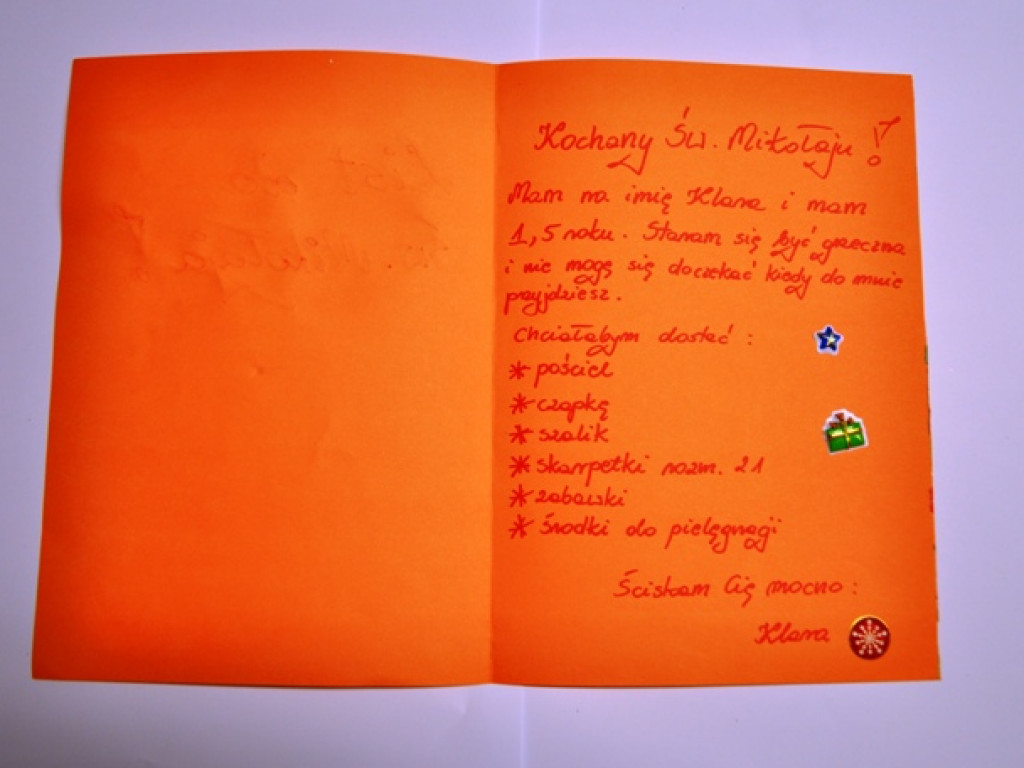 Kochany Św. Mikołaju!
Mam na imię Klara i mam
1,5 roku. Staram się być grzeczna
i nie mogę się doczekać kiedy do mnie
przyjdziesz.
Chciałabym dostać:
* pościel
* czapkę
* szalik
* skarpetki rozm. 21
* zabawki
* środki do pielęgnacji
Ściskam Cię mocno:
Klara